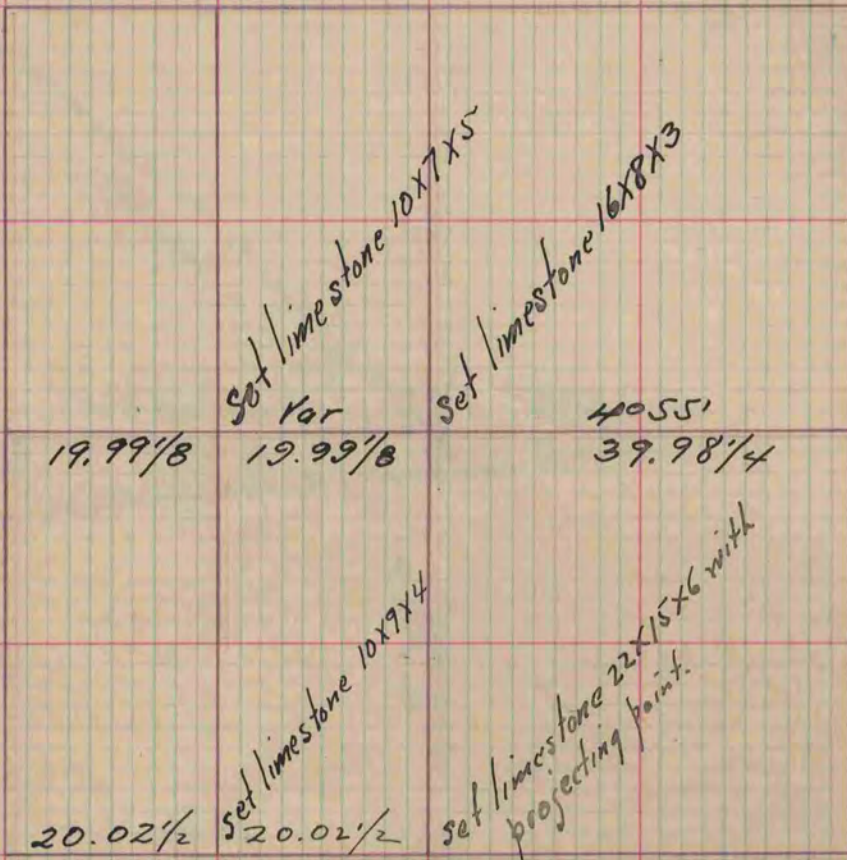 Set limestone 10x7x5
Set limestone 16x8x3
Var
4°55'
19.99 1/8
19.99 1/8
39.98 1/4
set limestone 10x9x4
set limestone 22x15x6 with
projecting point.
20.02 1/2
20.02 1/2